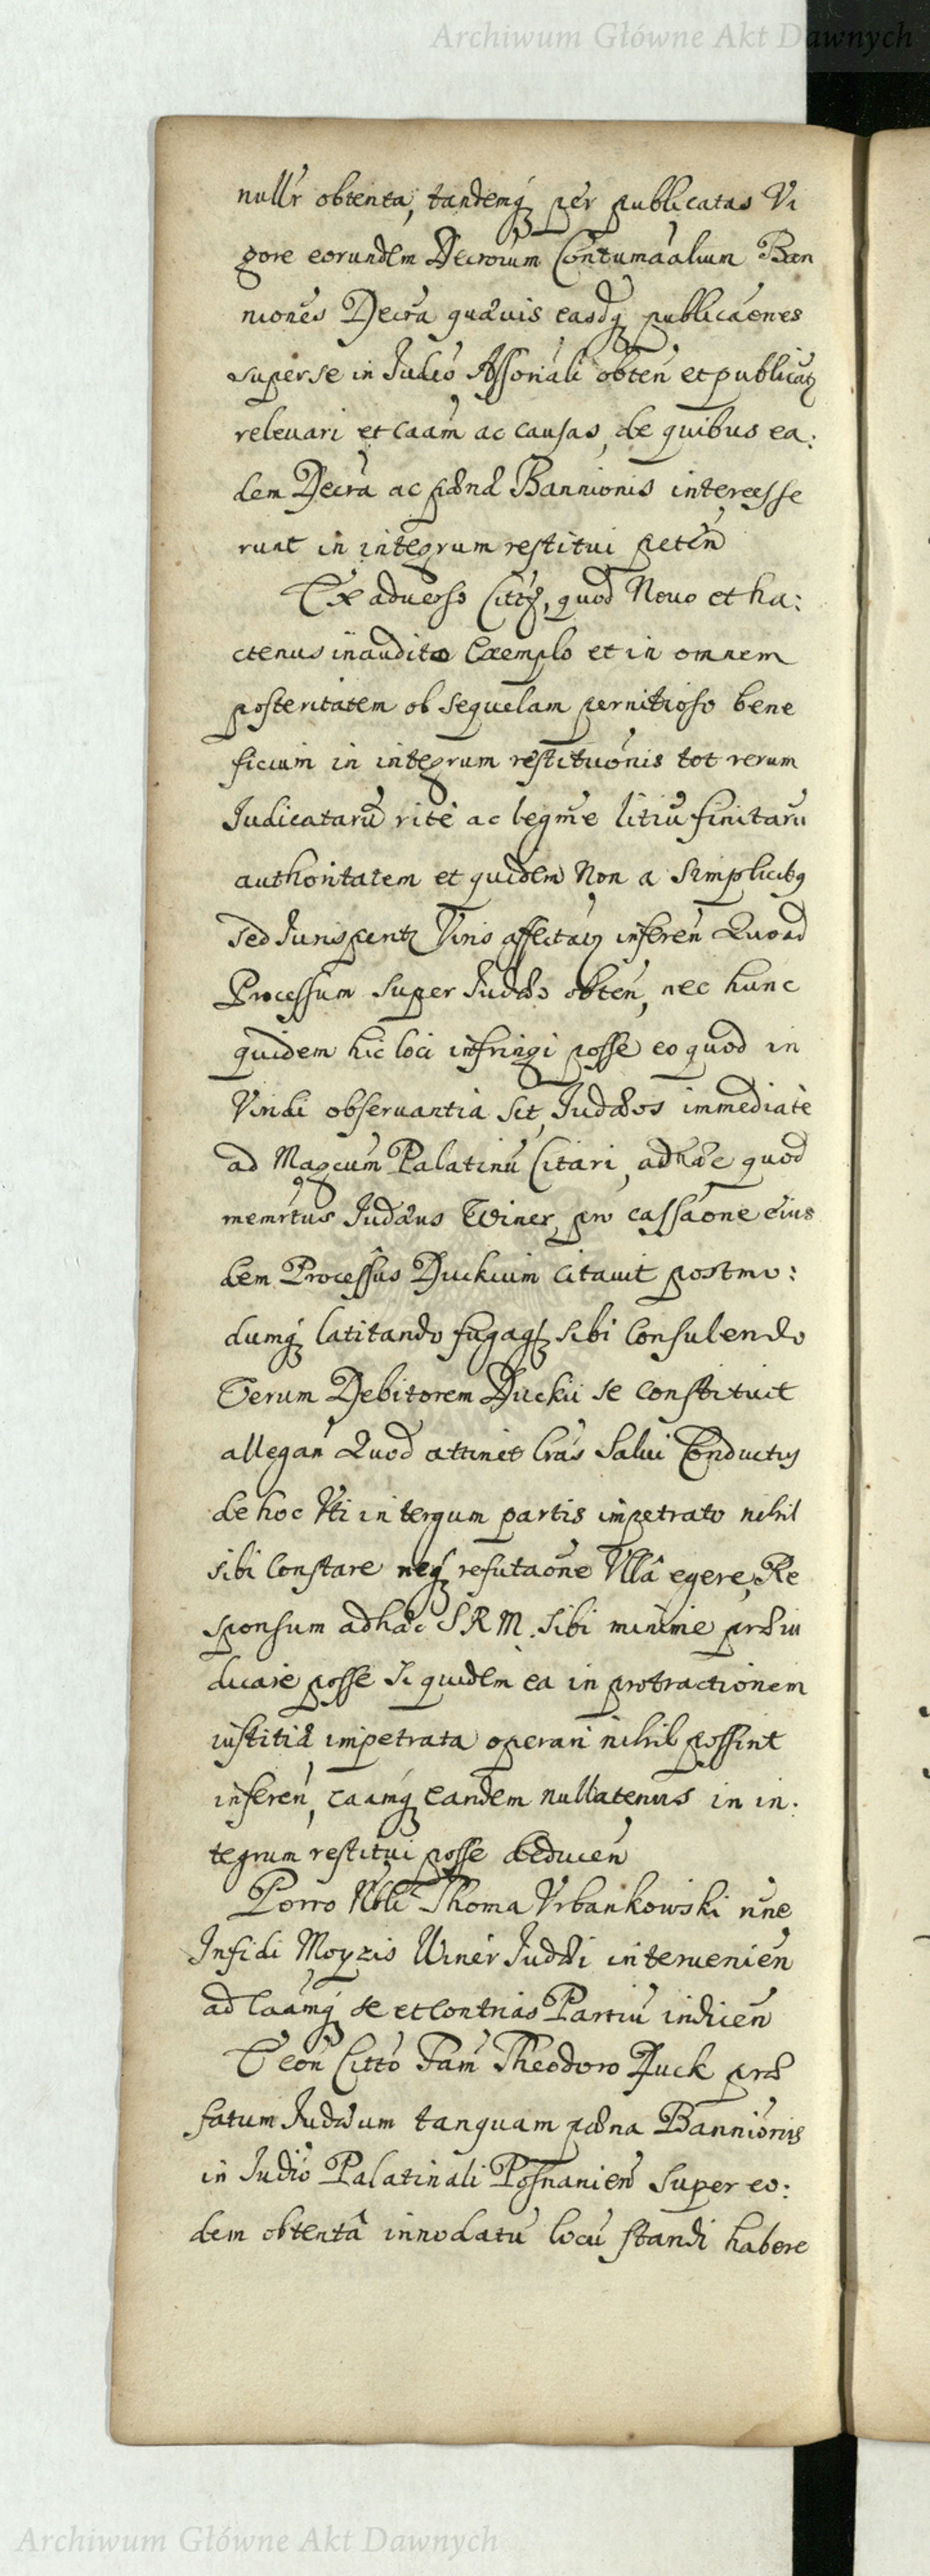 Archiwum Główne Akt Dawnych
nullr obtenta, tandemq per publicatas Vi
gore eorundem Decrorum Contumaalium Ban
niones Decra quævis easdq publicaones
super se in Judio Assoriali obten et publicatq
relevari et caam ac causas, de quibus ea:
dem Decra ac pænæ Bannionis intercesse
runt in integrum restitui peten
Ex adverso Cittq, quod Novo et ha:
ctenus inaudito Exemplo et in omnem
posteritatem ob sequelam pernitioso bene
ficium in integrum restituonis tot rerum
Judicataru rite ac legme litiu finitaru
authoritatem et quidem Non a Simplicibq
sed Juris Viris affectatq inferen Quoad
Processum super Judæo obten, nec hunc
quidem hic loci infringi posse eo quod in
Viridi observantia sit, Judæos immediatè
ad Magcum Palatinu Citari, adhæc quod
memrtus Judæus Winer, pro cassaone eius
dem Processus Duckium citavit postmo:
dumq latitando fugaq sibi consulendo
Verum Debitorem Duckii se constituit
allegan Quod attinet lras Salvi Conductus
de hoc Vti in tergum partis impetrato nihil
sibi Constare neq refutaone Vllâ egere, Re
sponsum adhæc S R M. sibi minime præiu
dicare posse siquidem ea in protractionem
iustitiæ impetrata operari nihil possint
inferen, caamq eandem nullatenus in in:
tegrum restitui posse deducen
Porro Nbli Thoma Vrbankowski nne
Infidi Moyzis Winer Judæi intervenien
ad Caamq se et Contrias Partiu indicen
Veon Citto Fam Theodoro Duck præ
fatum Judæum tanquam pæna Bannionis
in Judio Palatinali Posnanien super eo:
dem obtentâ innodatu locu standi habere
Archiwum Główne Akt Dawnych